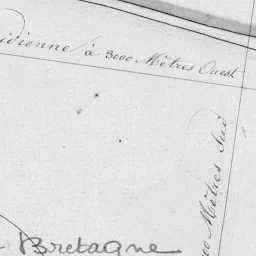 idienne à 3000 Mètres Ouest
00 Mètres Sud
Bretagne